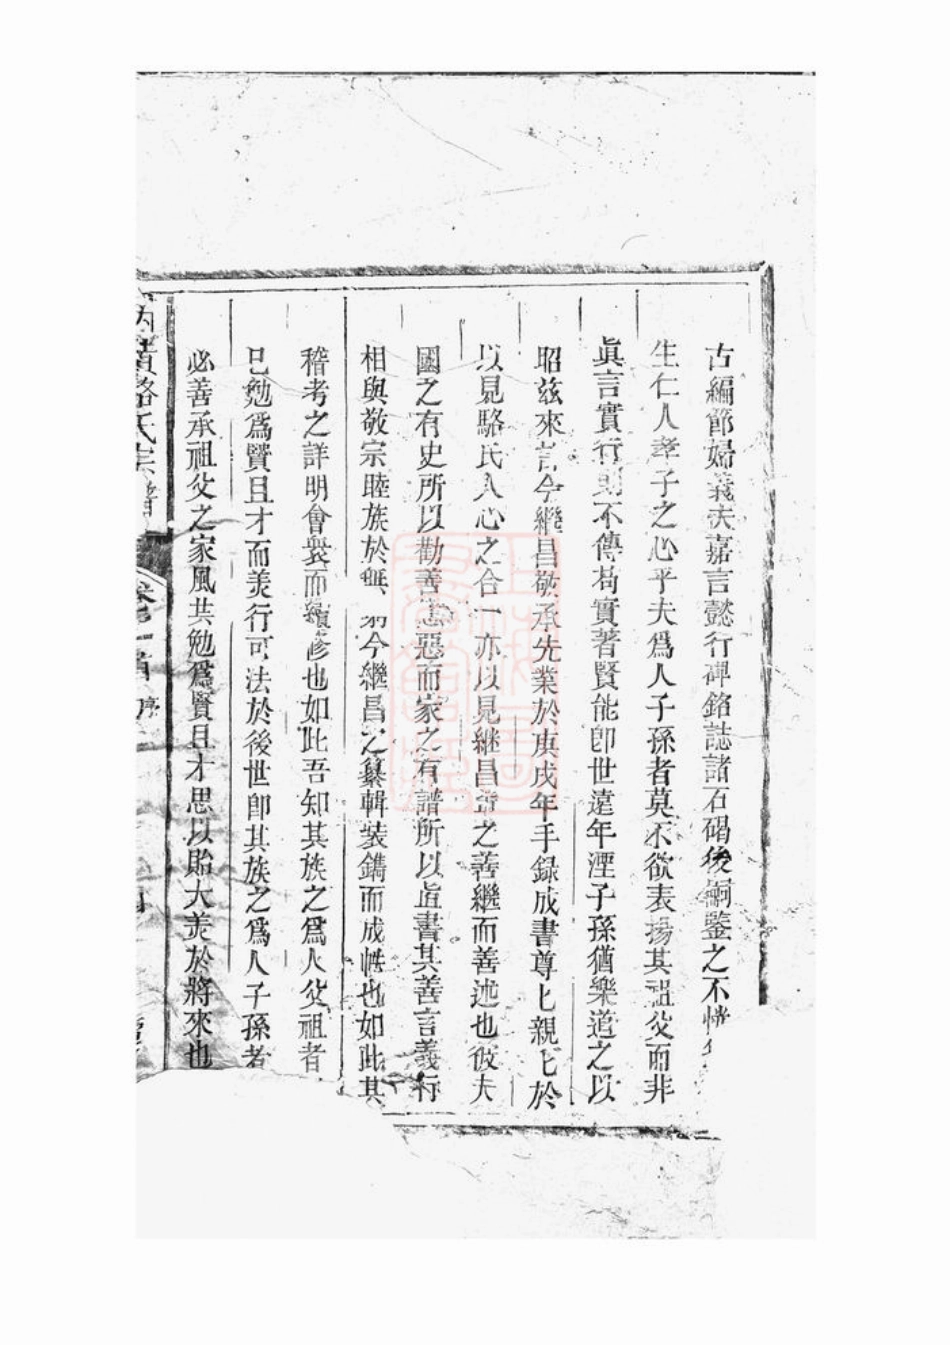 古編節婦義夫嘉言懿行碑銘誌諸石碣後嗣鑒之不
生仁人孝子之心乎夫爲人子孫者莫不欲表揚其祖父而非
眞言實行則不傳苟實著賢能卽世遠年湮子孫猶樂道之以
昭茲來言今繼昌敬承先業於庚戌年手錄成書尊匕親匕於
以見駱氏人心之合一亦以見継昌之善繼而善述也彼夫
國之有史所以勸善惡而家之有譜所以直書其善言義行
相與敬宗睦族於無今繼昌之纂輯裝鐫而成帙也如此其
稽考之詳明會衆而續修也如此吾知其族之爲人父祖者
已勉爲賢且才而美行可法於後世卽其族之爲人子孫者
必善承祖父之家風共勉爲賢且才思以貽大美於將來也
駱氏宗譜
卷一首
序